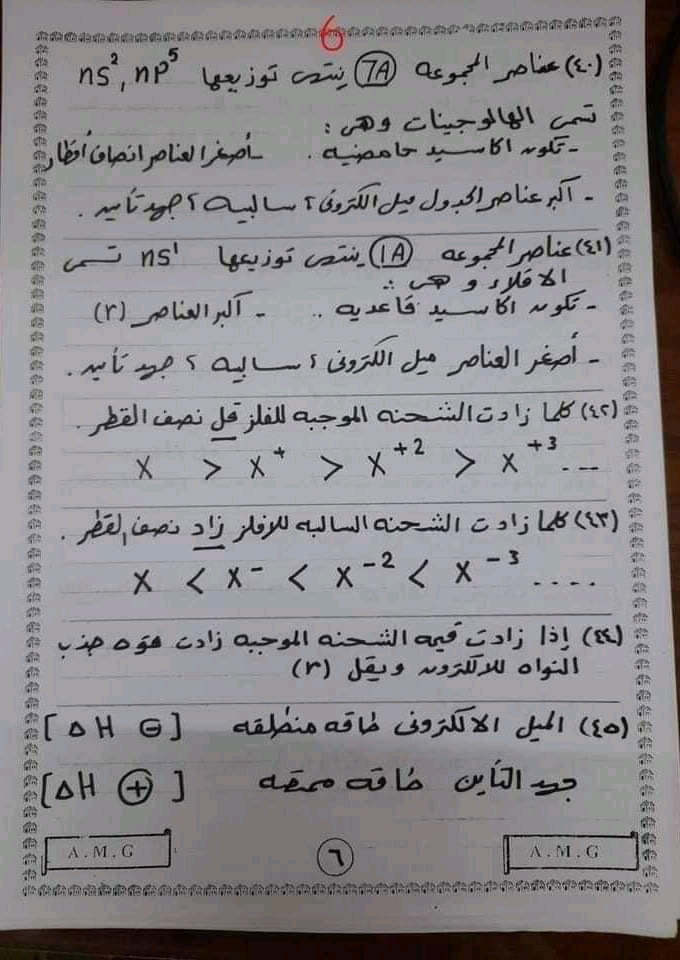 6
(٤٠) عناصر المجموعه 7A ينتهى توزيعها ns², np⁵
تسمى الهالوجينات وهى :
- تكون اكاسيد حامضيه . - أصغر العناصر انصاف أقطار
- أكبر عناصر الجدول ميل الكترونى ، سالبيه ، جهد تأين .
(٤١) عناصر المجموعه 1A ينتهى توزيعها ns¹ تسمى
الاقلاء و هى :
- تكون اكاسيد قاعديه . - أكبر العناصر (r)
- أصغر العناصر ميل الكترونى ، سالبيه ، جهد تأين .
(٤٢) كلما زادت الشحنه الموجبه للفلز قل نصف القطر .
X > X⁺ > X⁺² > X⁺³ ---
(٤٣) كلما زادت الشحنه السالبه للافلز زاد نصف القطر .
X < X⁻ < X⁻² < X⁻³ ....
(٤٤) إذا زادت قيمه الشحنه الموجبه زادت قوه جذب
النواه للالكترون ويقل (r)
(٤٥) الميل الالكترونى طاقه منطلقه [ΔH ⊖]
جهد التأين طاقه ممتصه [ΔH ⊕]
A.M.G ٦ A.M.G